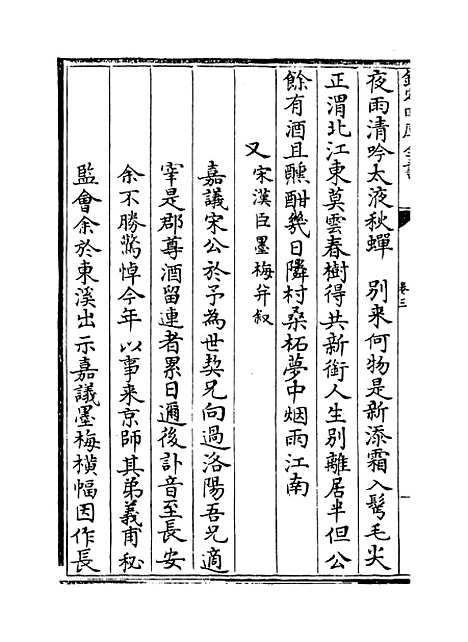 欽定四庫全書
卷三
夜雨清吟太液秋蟬　別来何物是新添霜入鬢毛尖
正渭北江東莫雲春樹得共新銜人生別離居半但公
餘有酒且醺酣幾日隣村桑柘夢中烟雨江南
又宋漢臣墨梅并叙
嘉議宋公於予為世契兄向過洛陽吾兄適
宰是郡尊酒留連者累日邇後訃音至長安
余不勝驚悼今年以事来京師其弟義甫秘
監會余於東溪出示嘉議墨梅橫幅因作長